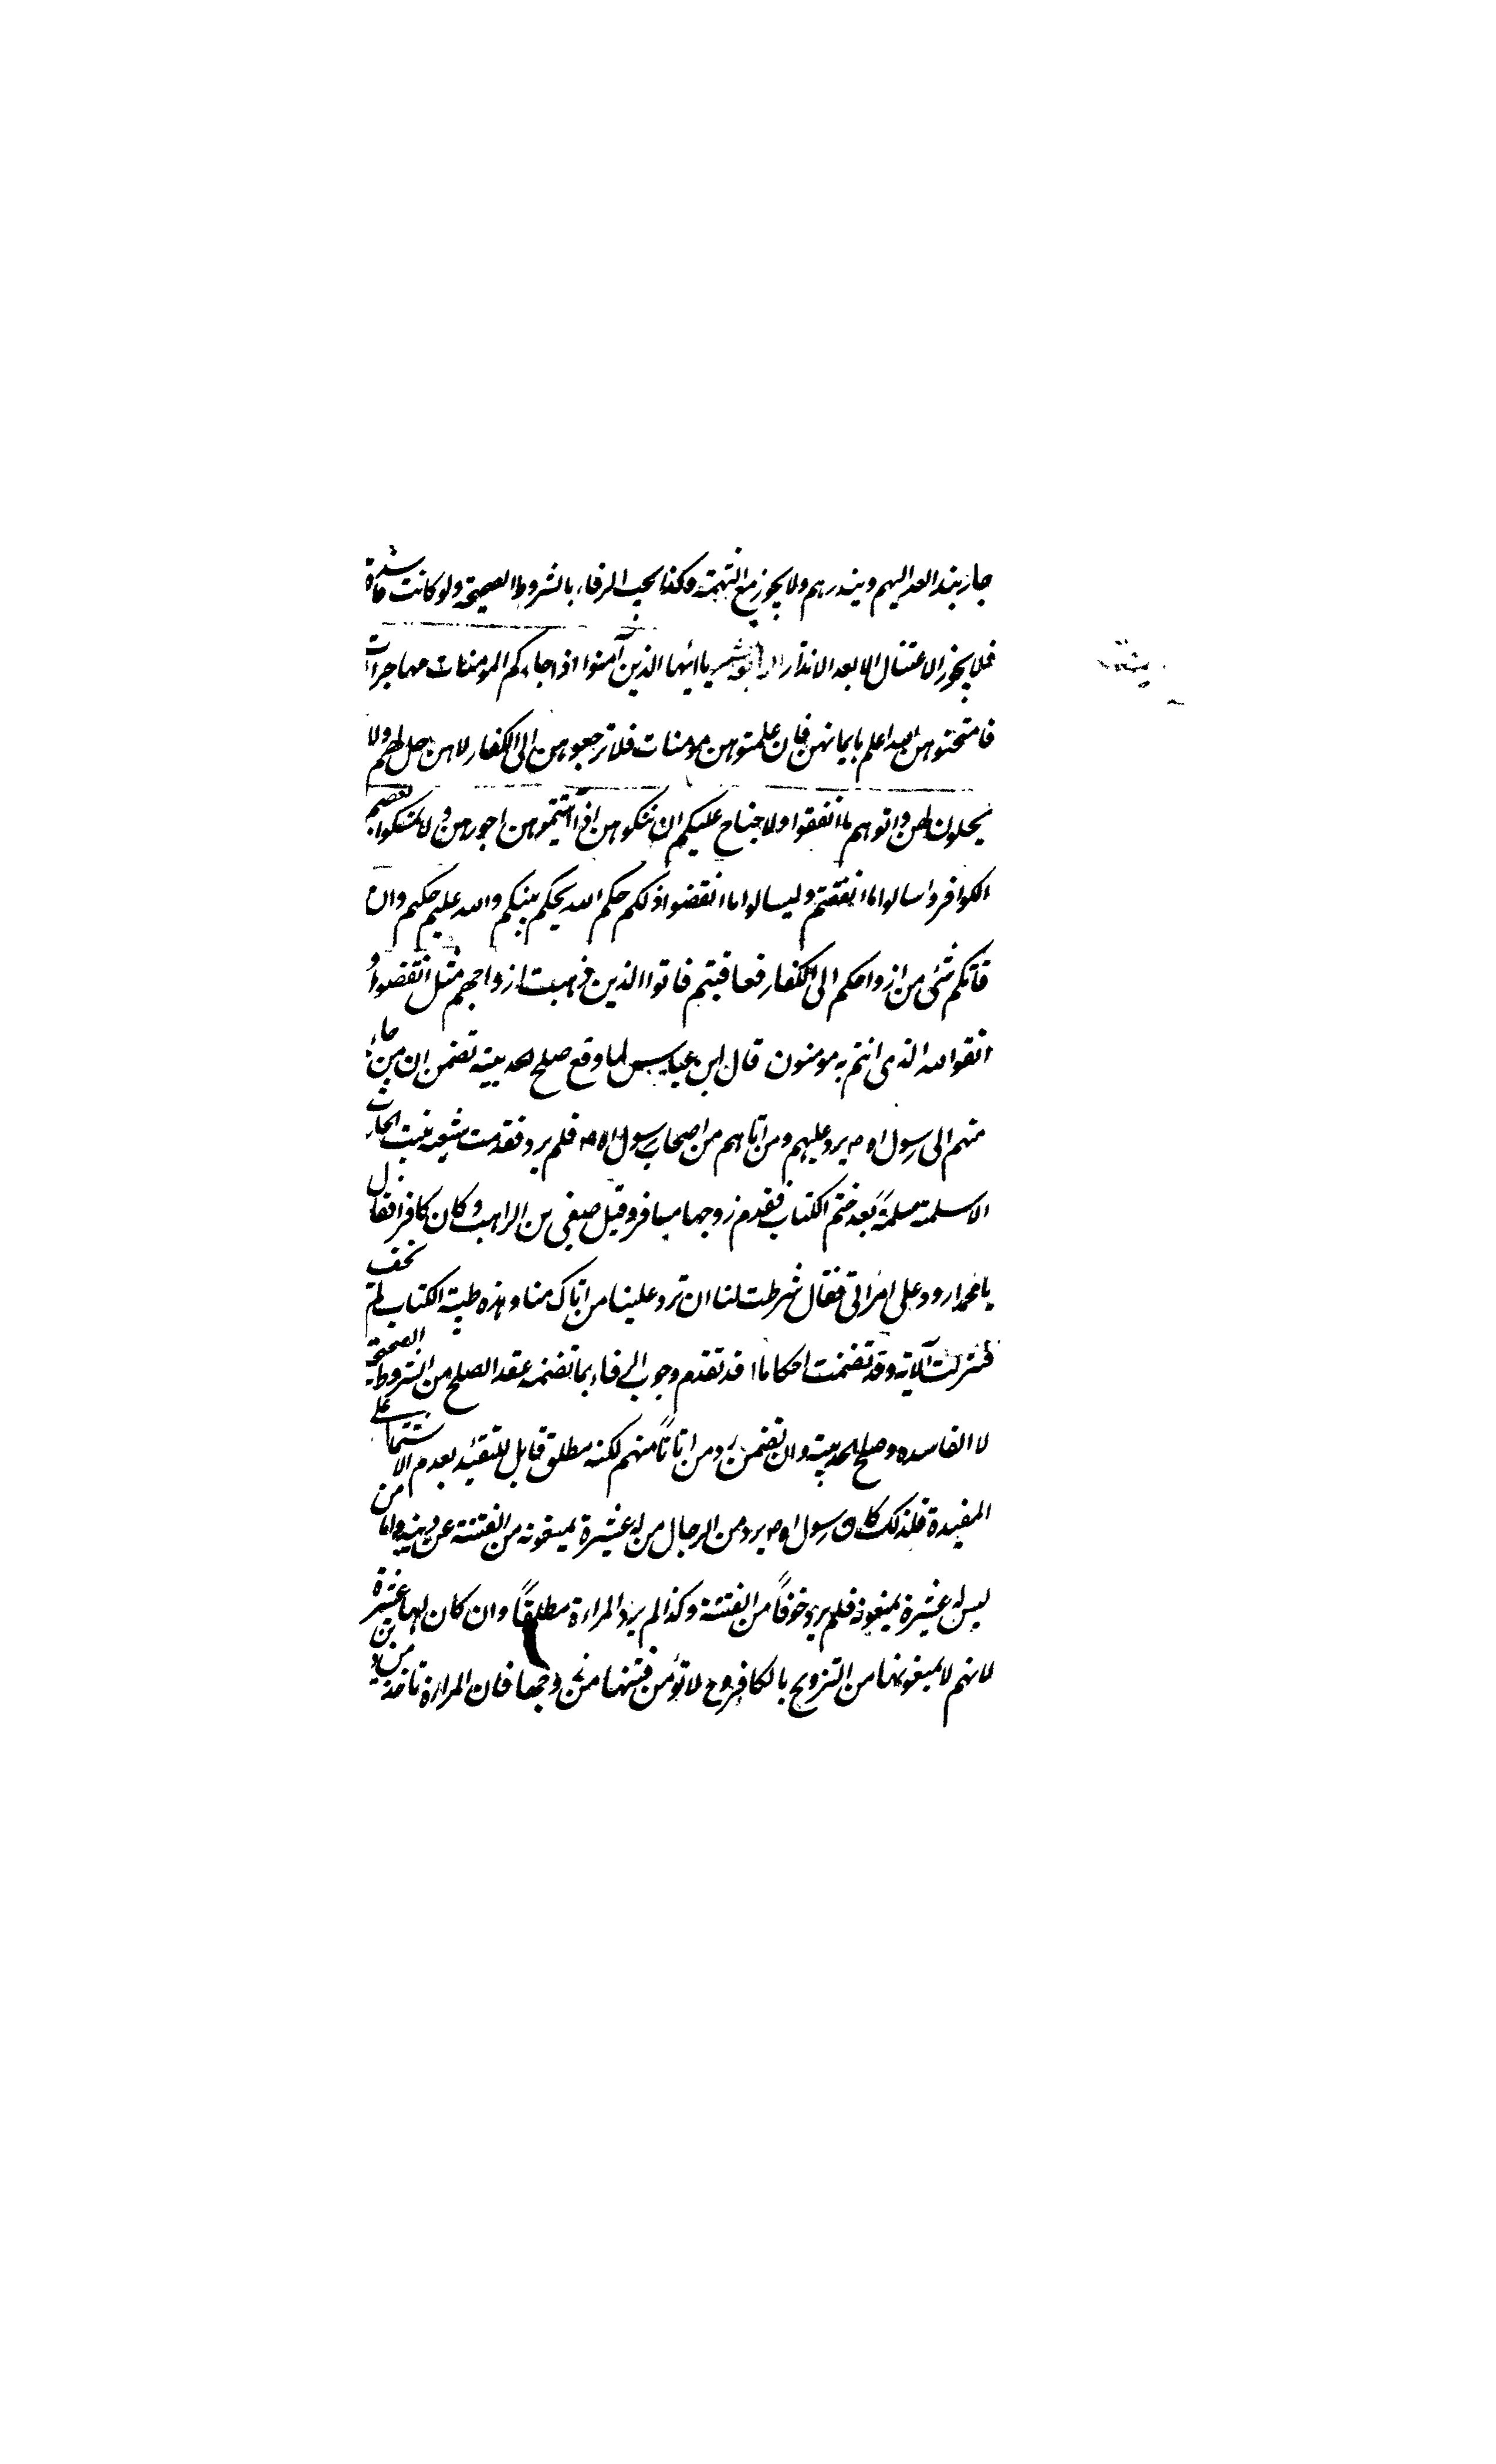 جاز نبذ العهد اليهم وينذرهم ولا يجوز مع التهمة وكذا يجب الوفاء بالشروط الصحيحة ولو كانت فاسدة
فلا يجوز الاغتيال الا بعد الانذار يا ايها الذين آمنوا اذا جاءكم المومنات مهاجرات
فامتحنوهن الله اعلم بايمانهن فان علمتموهن مومنات فلا ترجعوهن الى الكفار لا هن حل لهم ولا
يحلون لهن واتوهم ما انفقوا ولا جناح عليكم ان تنكحوهن اذا آتيتموهن اجورهن ولا تمسكوا بعصم
الكوافر واسالوا ما انفقتم وليسالوا ما انفقوا ذلكم حكم الله يحكم بينكم والله عليم حكيم وان
فاتكم شئ من ازواجكم الى الكفار فعاقبتم فاتوا الذين ذهبت ازواجهم مثل ما انفقوا و
اتقوا الله الذى انتم به مومنون قال ابن عباس لما وقع صلح الحديبية تضمن ان من جاء
منهم الى رسول اه ص يرد عليهم ومن اتاهم من اصحاب رسول اه ص فلم يرد فقدمت بنت الحارث
الاسلمية مسلمة بعد ختم الكتاب فقدم زوجها مسافر وقيل صيفي بن الراهب وكان كافرا فقال
يا محمد اردد على امراتى فقال شرطت لنا ان ترد علينا من اتاك منا وهذه طية الكتاب لم تجف
فنزلت الآية وقد تضمنت احكاما ا قد تقدم وجوب الوفاء بما تضمنه عقد الصلح من الشروط الصحيحة
لا الفاسده وصلح الحديبية وان تضمن رد من اتانا منهم لكنه مطلق قابل للتقئيد بعدم الاشتمال على
المفسدة فلذلك كان رسول اه ص يرد من الرجال من له عشيرة يمنعونه من الفتنة عن دينه واما من
ليس له عشيرة يمنعونه فلم يرد خوفاً من الفتنة وكذا لم يرد المراءة مطلقاً وان كان لها عشيرة
لانهم لا يمنعونها من التزويج بالكافر وح لا تؤمن فتنتها من زوجها فان المراءة تاخذ من دين